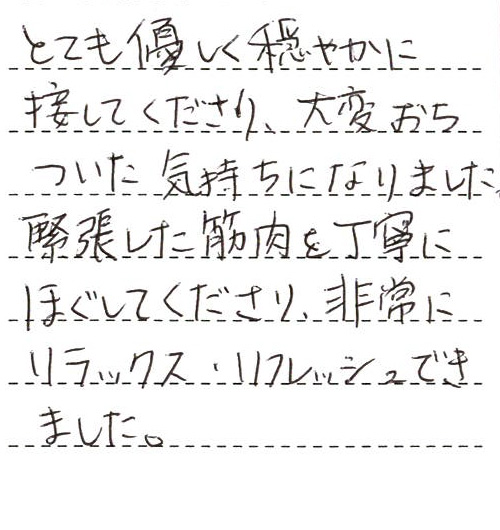 とても優しく穏やかに
接してくださり、大変おち
ついた気持ちになりました。
緊張した筋肉を丁寧に
ほぐしてくださり、非常に
リラックス・リフレッシュでき
ました。